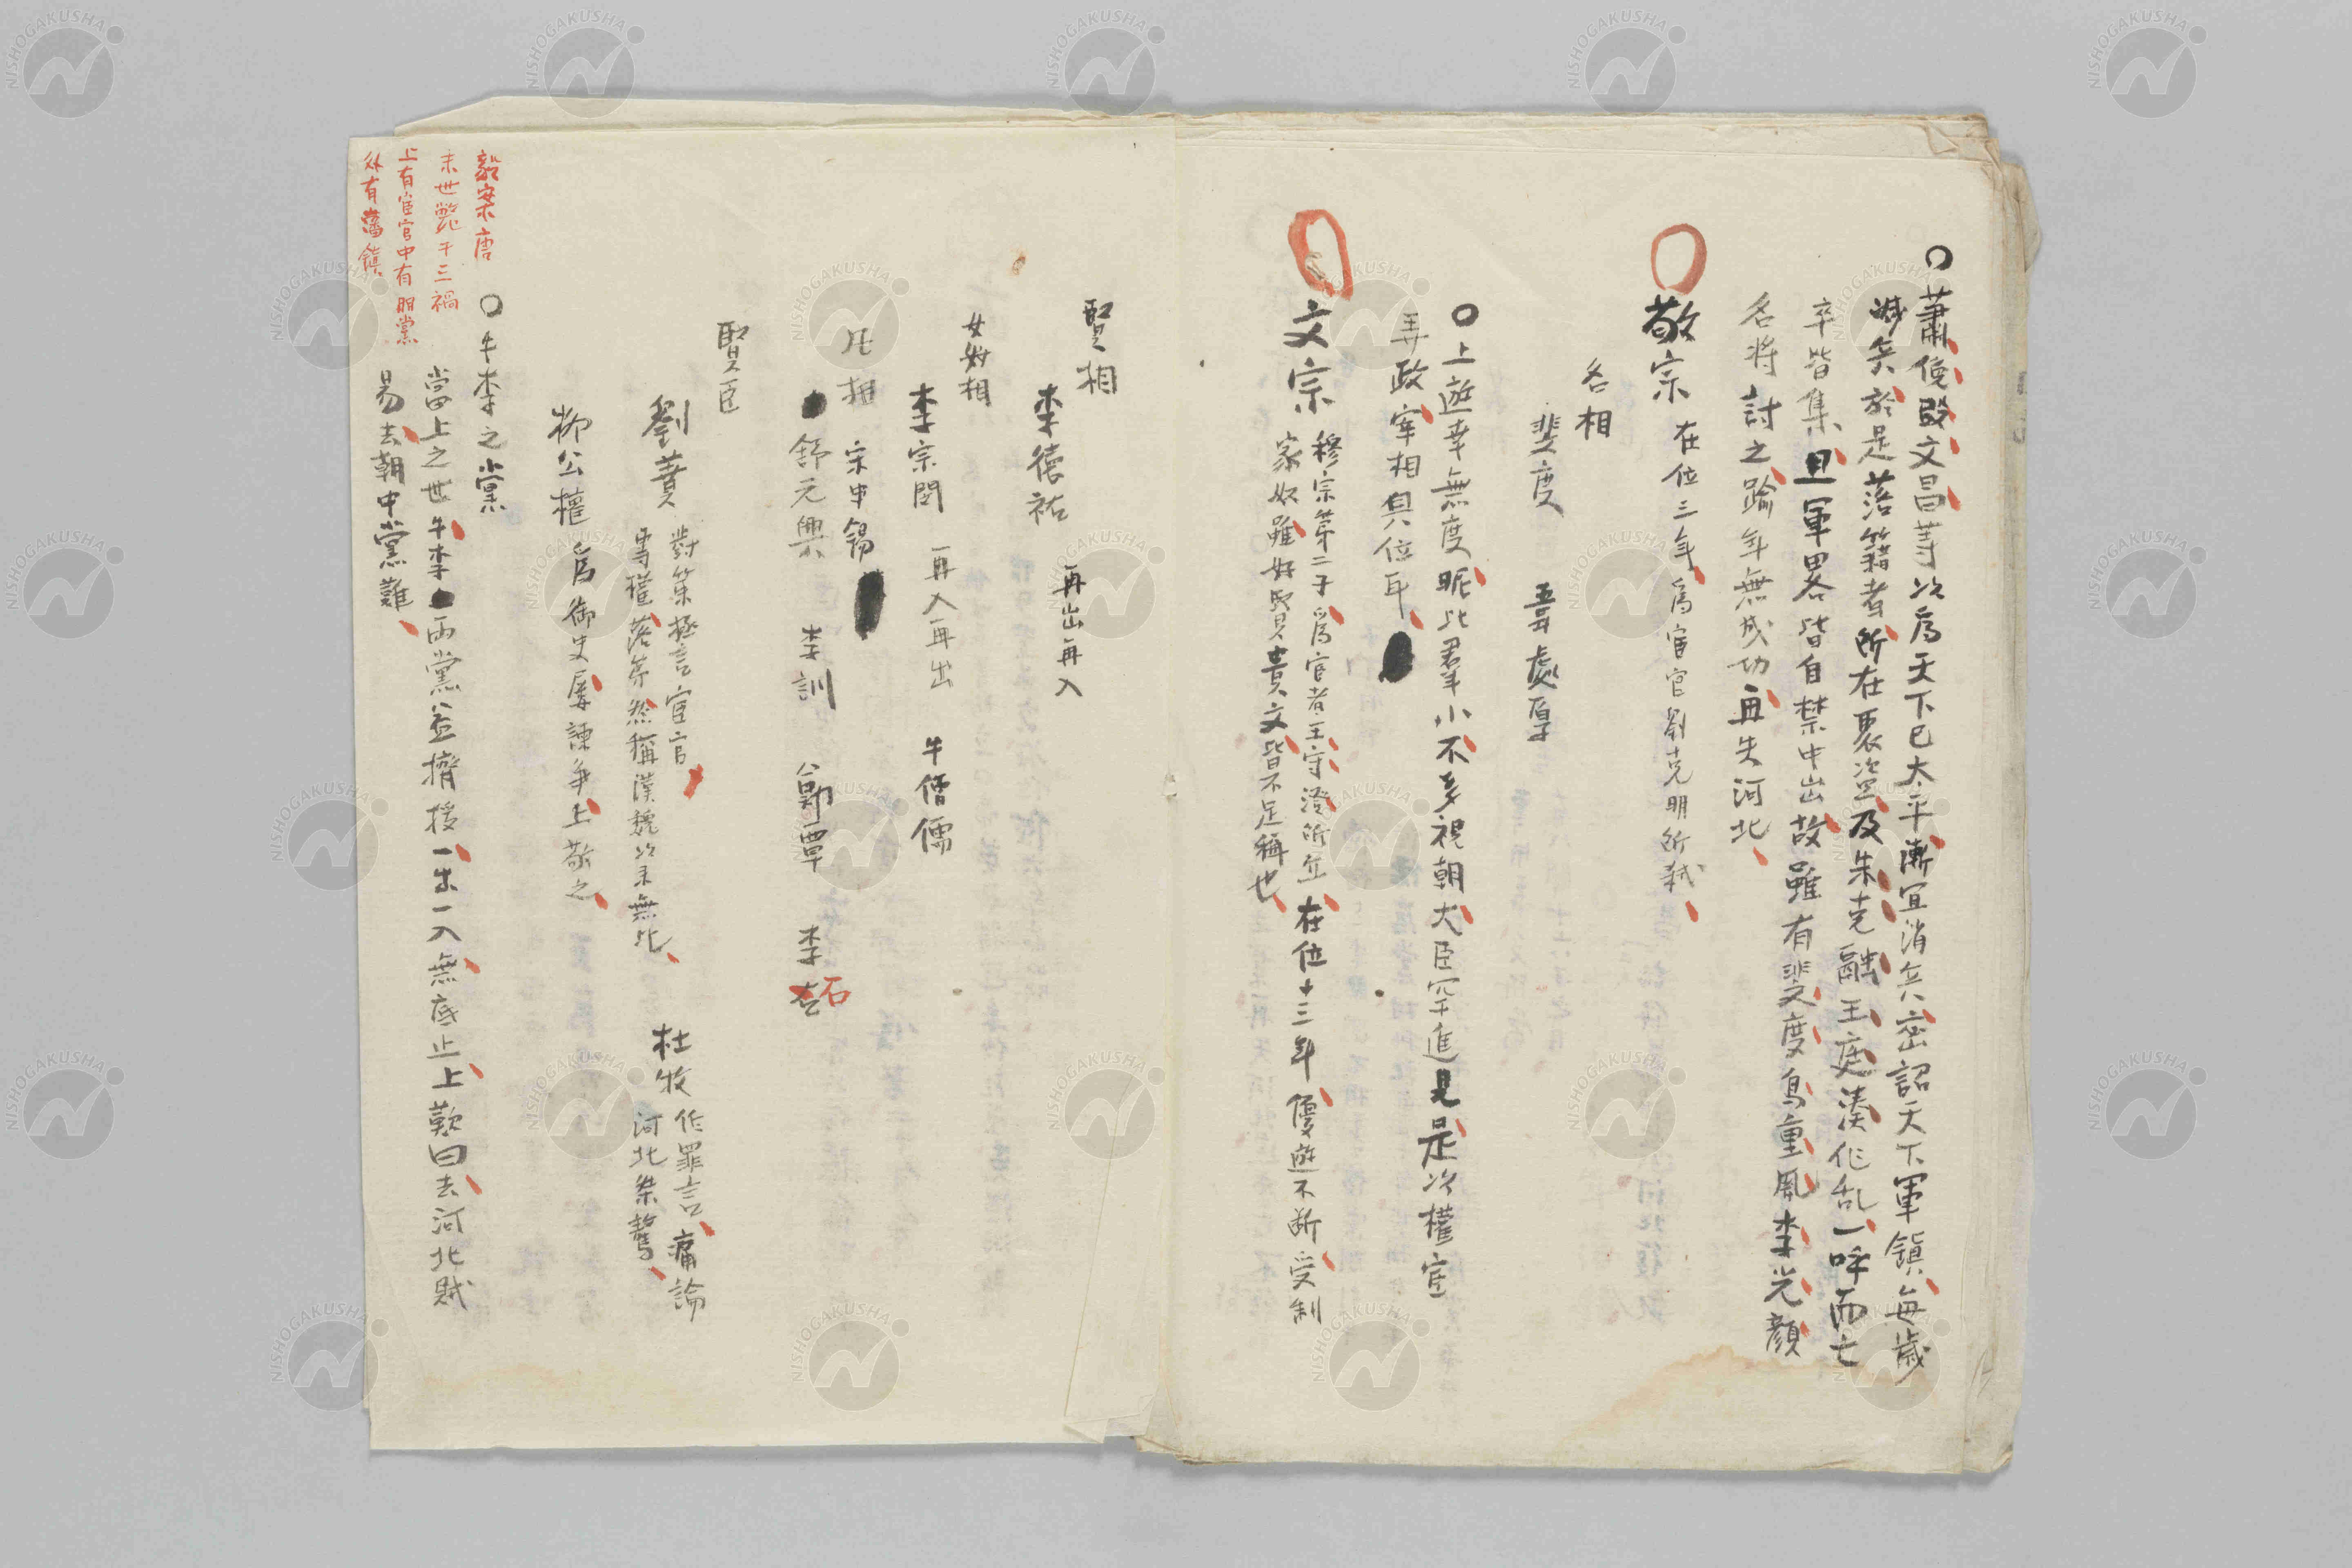 ○蕭俛段文昌等以爲天下已太平漸宜消兵密詔天下軍鎮每歳
减矣於是落籍者所在聚盗及朱克融王庭湊作乱一呼而亡
卒皆集且軍畧皆自禁中出故雖有裴度烏重胤李光顔
名将討之踰年無成功再失河北
○敬宗 在位三年爲宦官劉克明所弑
名相
裴度 韋處厚
○上遊幸無度昵比羣小不多視朝大臣罕進見是以權宦
弄政宰相具位耳
○文宗 穆宗第二子爲宦者王守澄所立在位十三年優遊不断受制
家奴雖好賢貴文皆不足稱也
賢相
李德祐 再出再入
姦相
李宗閔 再入再出 牛僧儒
凡相 宋申錫
舒元輿 李訓 鄭覃 李石
賢臣
劉蕡 對策極言宦官
雪權落第然稱漢魏以来無比
杜牧 作罪言痛論
河北桀驁
柳公權 爲御史屡諫争上敬之
○牛李之黨
當上之世牛李両黨並擠援一出一入無底止上歎曰去河北賊
易去朝中黨難
毅案唐
末世斃于三禍
上有宦官中有朋黨
外有藩鎮
NISHOGAKUSHA